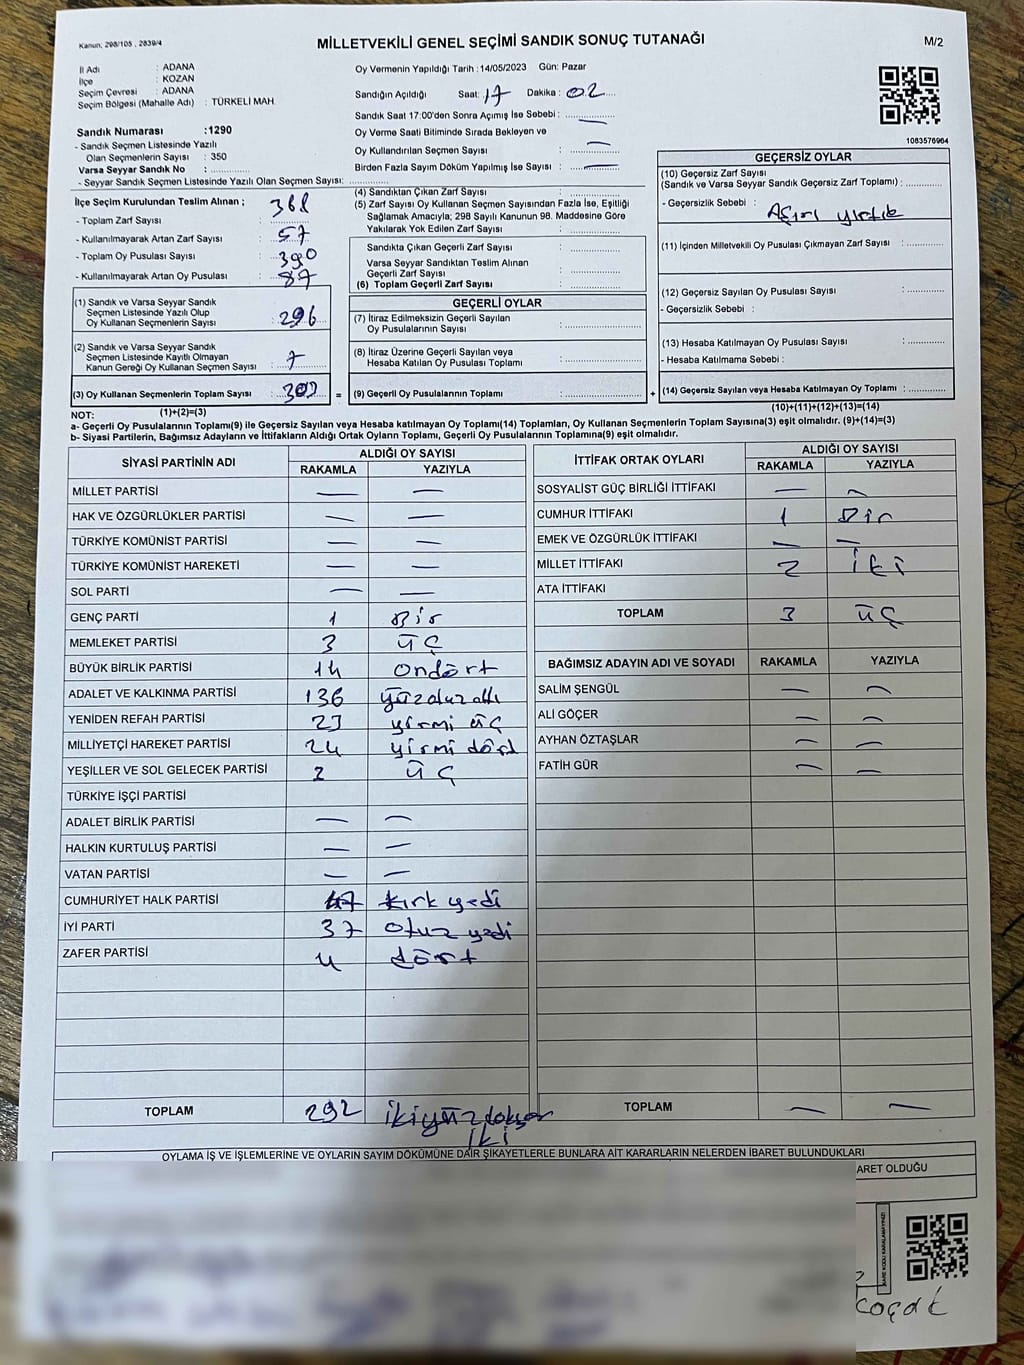 Kanun, 298/105 , 2839/4
MİLLETVEKİLİ GENEL SEÇİMİ SANDIK SONUÇ TUTANAĞI
M/2
İl Adı : ADANA
İlçe : KOZAN
Seçim Çevresi : ADANA
Seçim Bölgesi (Mahalle Adı) : TÜRKELİ MAH.
Sandık Numarası :1290
- Sandık Seçmen Listesinde Yazılı
Olan Seçmenlerin Sayısı : 350
Varsa Seyyar Sandık No :
- Seyyar Sandık Seçmen Listesinde Yazılı Olan Seçmen Sayısı:
Oy Vermenin Yapıldığı Tarih :14/05/2023 Gün: Pazar
Sandığın Açıldığı Saat: 17 Dakika : 02
Sandık Saat 17:00'den Sonra Açımış İse Sebebi : —
Oy Verme Saati Bitiminde Sırada Bekleyen ve
Oy Kullandırılan Seçmen Sayısı : —
Birden Fazla Sayım Döküm Yapılmış İse Sayısı : —
1083576964
İlçe Seçim Kurulundan Teslim Alınan ; 368
- Toplam Zarf Sayısı :
- Kullanılmayarak Artan Zarf Sayısı : 57
- Toplam Oy Pusulası Sayısı : 390
- Kullanılmayarak Artan Oy Pusulası : 87
(1) Sandık ve Varsa Seyyar Sandık
Seçmen Listesinde Yazılı Olup
Oy Kullanan Seçmenlerin Sayısı : 296
(2) Sandık ve Varsa Seyyar Sandık
Seçmen Listesinde Kayıtlı Olmayan
Kanun Gereği Oy Kullanan Seçmen Sayısı : 7
(3) Oy Kullanan Seçmenlerin Toplam Sayısı : 303
(1)+(2)=(3)
(4) Sandıktan Çıkan Zarf Sayısı :
(5) Zarf Sayısı Oy Kullanan Seçmen Sayısından Fazla İse, Eşitliği
Sağlamak Amacıyla; 298 Sayılı Kanunun 98. Maddesine Göre
Yakılarak Yok Edilen Zarf Sayısı :
Sandıkta Çıkan Geçerli Zarf Sayısı :
Varsa Seyyar Sandıktan Teslim Alınan
Geçerli Zarf Sayısı :
(6) Toplam Geçerli Zarf Sayısı :
GEÇERLİ OYLAR
(7) İtiraz Edilmeksizin Geçerli Sayılan
Oy Pusulalarının Sayısı :
(8) İtiraz Üzerine Geçerli Sayılan veya
Hesaba Katılan Oy Pusulası Toplamı :
= (9) Geçerli Oy Pusulalarının Toplamı :
GEÇERSİZ OYLAR
(10) Geçersiz Zarf Sayısı
(Sandık ve Varsa Seyyar Sandık Geçersiz Zarf Toplamı) :
- Geçersizlik Sebebi : Aşırı yırtık
(11) İçinden Milletvekili Oy Pusulası Çıkmayan Zarf Sayısı :
(12) Geçersiz Sayılan Oy Pusulası Sayısı :
- Geçersizlik Sebebi :
(13) Hesaba Katılmayan Oy Pusulası Sayısı :
- Hesaba Katılmama Sebebi :
+ (14) Geçersiz Sayılan veya Hesaba Katılmayan Oy Toplamı :
(10)+(11)+(12)+(13)=(14)
NOT:
a- Geçerli Oy Pusulalarının Toplamı(9) ile Geçersiz Sayılan veya Hesaba katılmayan Oy Toplamı(14) Toplamları, Oy Kullanan Seçmenlerin Toplam Sayısına(3) eşit olmalıdır. (9)+(14)=(3)
b- Siyasi Partilerin, Bağımsız Adayların ve İttifakların Aldığı Ortak Oyların Toplamı, Geçerli Oy Pusulalarının Toplamına(9) eşit olmalıdır.
SİYASİ PARTİNİN ADI ALDIĞI OY SAYISI
RAKAMLA YAZIYLA
MİLLET PARTİSİ — —
HAK VE ÖZGÜRLÜKLER PARTİSİ — —
TÜRKİYE KOMÜNİST PARTİSİ — —
TÜRKİYE KOMÜNİST HAREKETİ — —
SOL PARTİ — —
GENÇ PARTİ 1 Bir
MEMLEKET PARTİSİ 3 üç
BÜYÜK BİRLİK PARTİSİ 14 ondört
ADALET VE KALKINMA PARTİSİ 136 yüzotuzaltı
YENİDEN REFAH PARTİSİ 23 yirmi üç
MİLLİYETÇİ HAREKET PARTİSİ 24 yirmi dört
YEŞİLLER VE SOL GELECEK PARTİSİ 3 üç
TÜRKİYE İŞÇİ PARTİSİ
ADALET BİRLİK PARTİSİ — —
HALKIN KURTULUŞ PARTİSİ — —
VATAN PARTİSİ — —
CUMHURİYET HALK PARTİSİ 47 kırk yedi
İYİ PARTİ 37 otuz yedi
ZAFER PARTİSİ 4 dört
TOPLAM 292 ikiyüzdoksan
iki
İTTİFAK ORTAK OYLARI ALDIĞI OY SAYISI
RAKAMLA YAZIYLA
SOSYALİST GÜÇ BİRLİĞİ İTTİFAKI — —
CUMHUR İTTİFAKI 1 Bir
EMEK VE ÖZGÜRLÜK İTTİFAKI — —
MİLLET İTTİFAKI 2 iki
ATA İTTİFAKI
TOPLAM 3 üç
BAĞIMSIZ ADAYIN ADI VE SOYADI RAKAMLA YAZIYLA
SALİM ŞENGÜL — —
ALİ GÖÇER — —
AYHAN ÖZTAŞLAR — —
FATİH GÜR — —
TOPLAM — —
OYLAMA İŞ VE İŞLEMLERİNE VE OYLARIN SAYIM DÖKÜMÜNE DAİR ŞİKAYETLERLE BUNLARA AİT KARARLARIN NELERDEN İBARET BULUNDUKLARI
ARET OLDUĞU
KARE KODU KARALAMAYINIZ!